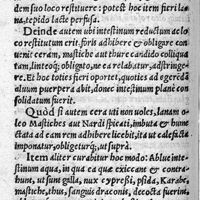 dem suo loco restituere: potest hoc item fieri la-
na, tepido lacte perfusa.
Deinde autem ubi intestinum reductum ac lo
co restitutum erit. foris adhibere & obligare con-
ueni ceram, mastiche aut thure candido colliqua
tam, linteoq; obligato, ne ea relabatur, adstringere.
Et hoc toties fieri oportet, quoties ad egerēdā
aluum puerpera abit, donec intestinum planè con
solidatum fuerit.
Quòd si autem cera uti non uoles, lanam o-
leo Mastiches aut Nardi spicati, imbuta & inunc
tata ad eam rem adhibere licebit, ita ut calefacta
imponatur, obligeturq́;, ut suprà.
Item aliter curabitur hoc modo: Ablue inte-
stinum aqua, in qua ea quæ exiccant & contra-
hunt, ut sunt galla, nux cypressi, psidia, Karabe,
mastiche, thus, sanguis draconis, decocta fuerint,